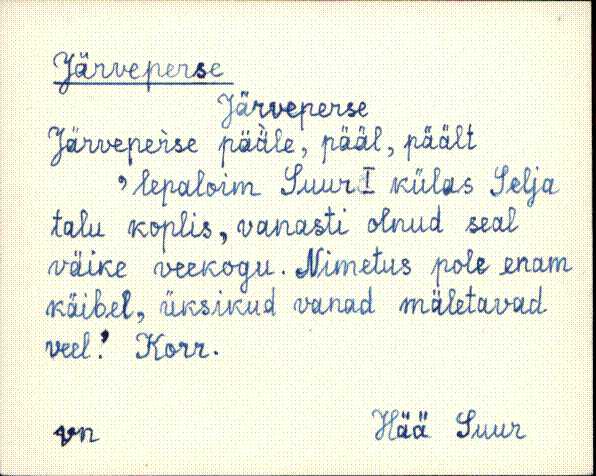 Järveperse
Järveperse
Järvepèrse pääle, pääl, päält
’lepaloim Suur I külas Selja
talu koplis, vanasti olnud seal
väike veekogu. Nimetus pole enam
käibel, üksikud vanad mäletavad
veel.’ Korr.
vn Hää Suur